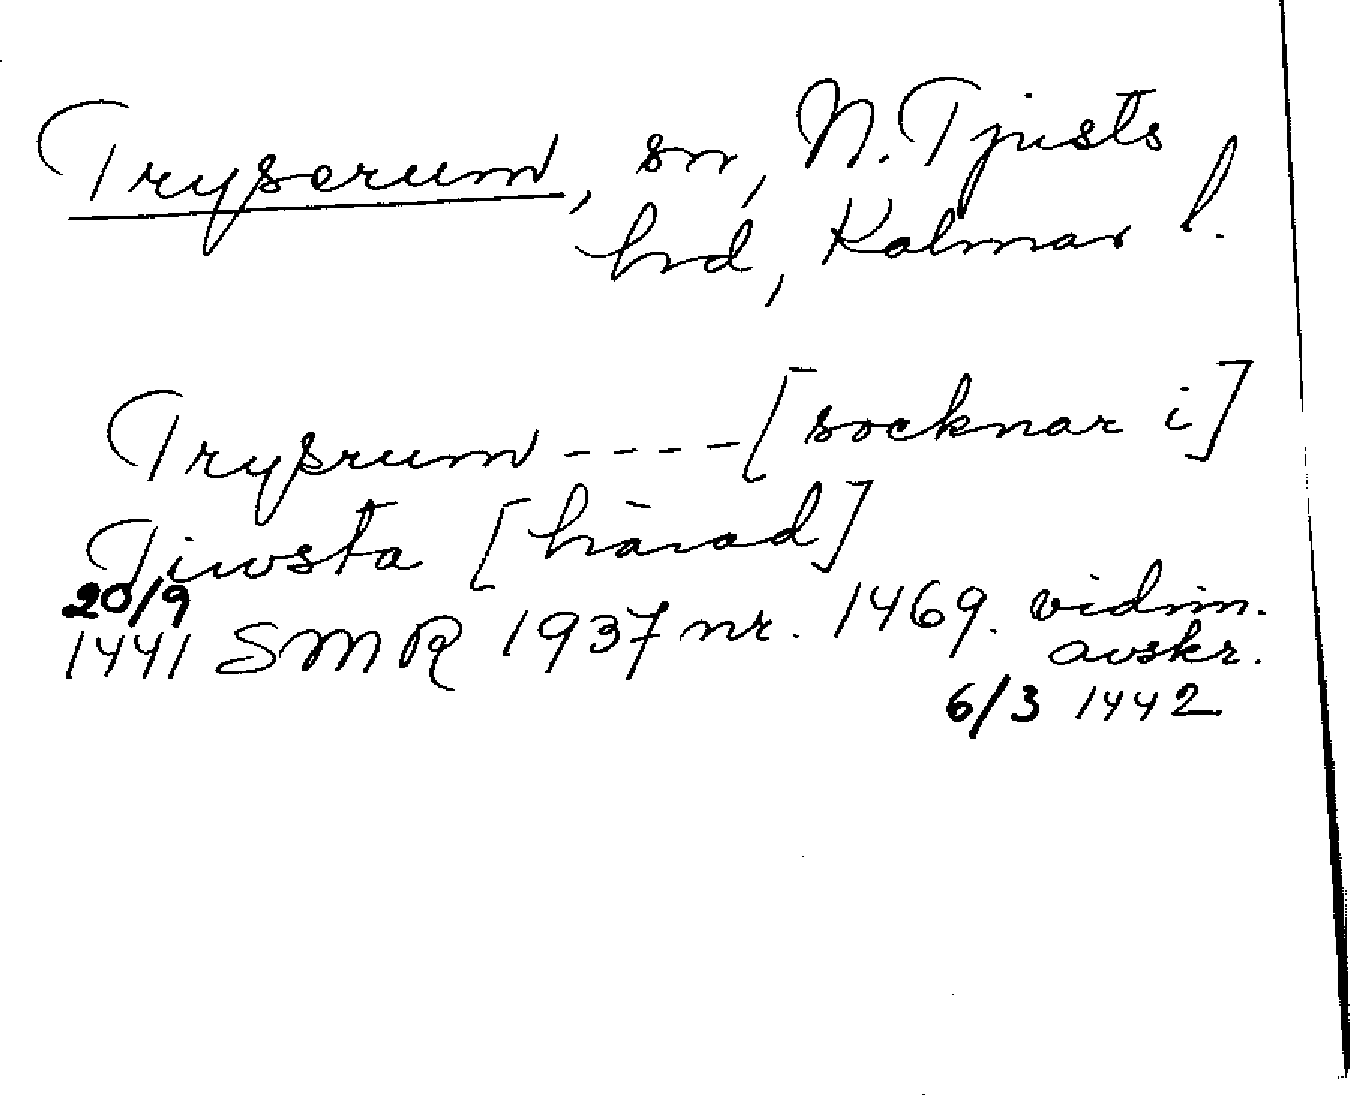 Tryserum, sn, N. Tjusts
hrd, Kalmar l.
Trysrum ---- [socknar i]
Tiwsta [härad]
20/9
1441 SMR 1937 nr. 1469. vidim.
avskr.
6/3 1442